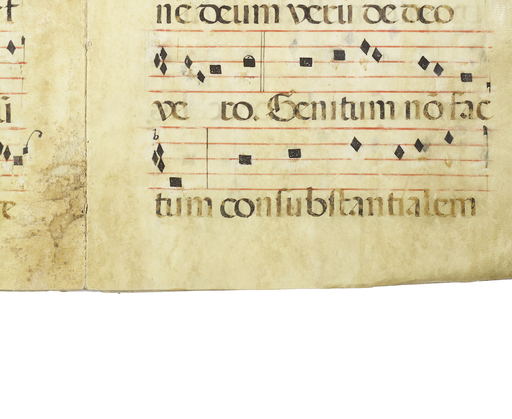 ne deum verū de deo
ve ro. Genitum nō fac
tum consubstantialem